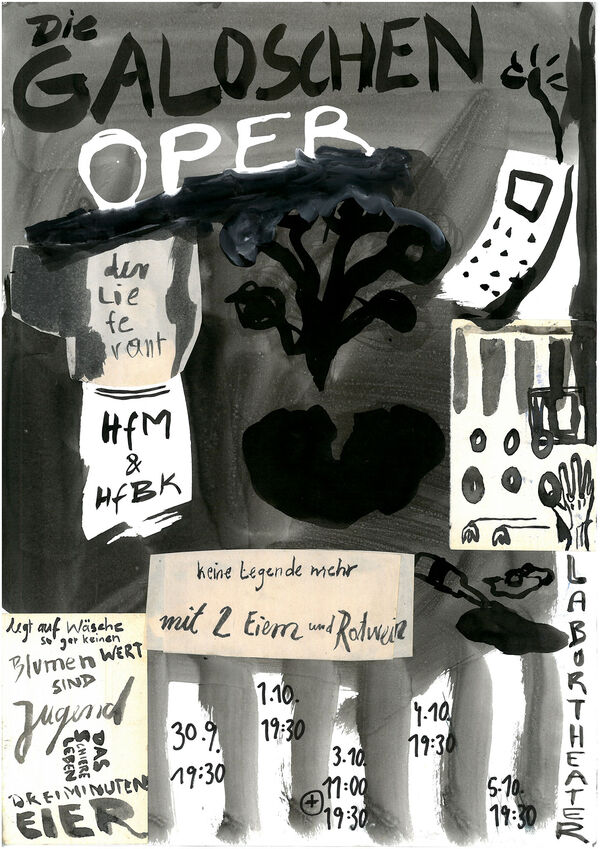 Die
GALOSCHEN
OPER
der
Lie
fe
rant
HfM
&
HfBK
keine Legende mehr
mit 2 Eiern und Rotwein
legt auf Wäsche
so gar keinen
WERT
Blumen
SIND
Jugend
DAS
SCHIERE
LEBEN
DREIMINUTEN
EIER
30.9.
19:30
1.10.
19:30
3.10.
11:00
+
19:30
4.10.
19:30
5.10.
19:30
LABORTHEATER